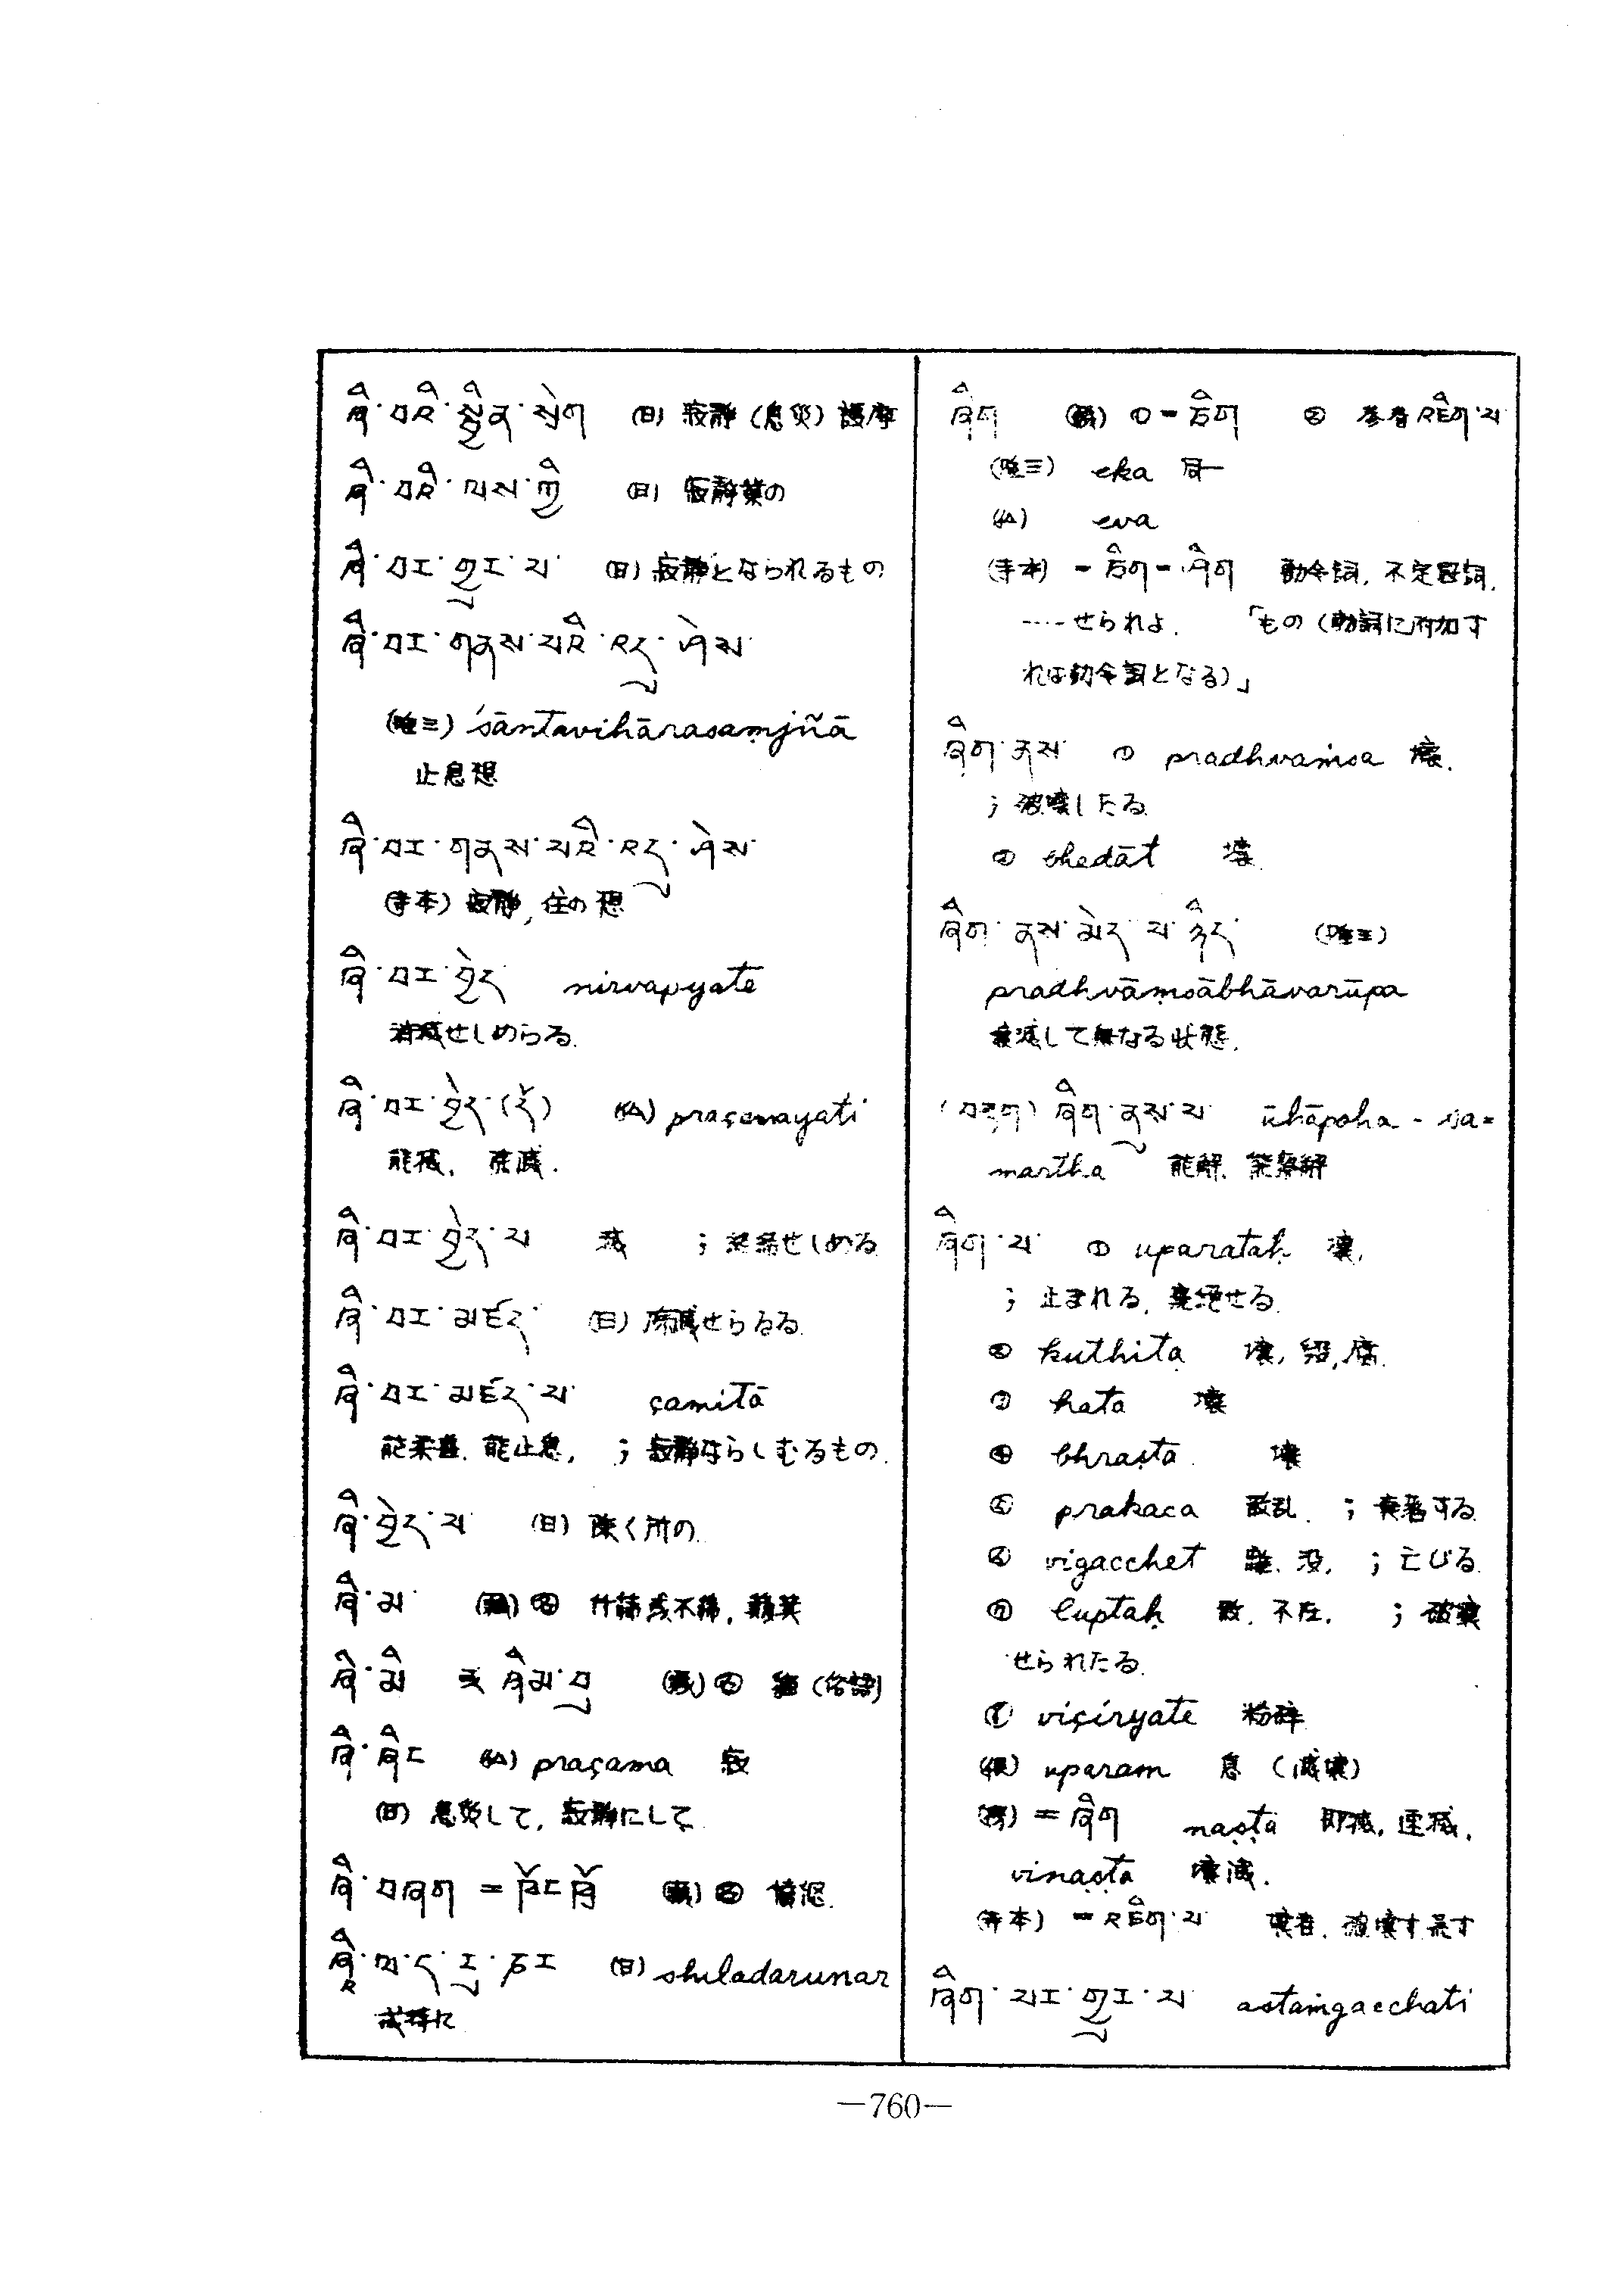 ཞི་བའི་སྦྱིན་སྲེག (日) 寂静 (息災) 護摩
ཞི་བའི་ལས་ཀྱི (日) 寂静業の
ཞི་བར་གྱུར་པ (日) 寂静となられるもの
ཞི་བར་གནས་པའི་འདུ་ཤེས
(唯三) śāntavihārasaṃjñā
止息想
ཞི་བར་གནས་པའི་འདུ་ཤེས་
(寺本) 寂静, 住の想
ཞི་བར་བྱེད nirvapyate
消滅せしめらる.
ཞི་བར་བྱེད་(དོ) (仏) praçamayati
能滅,
ཞི་བར་བྱེད་པ 滅 ; せしめる
ཞི་བར་མཛད (日) せらるる
ཞི་བར་མཛད་པ çamitā
能柔善. 能止息, ; 寂静ならしむるもの.
ཞི་བྱེད་པ (日) 除く所の
ཞི་མ (蔵) 名
ཞི་མི 又 ཞིམ་བུ (蔵) 名 猫 (俗語)
ཞི་ཞིང (仏) praçama 寂
(日) 息災して, 寂静にして
ཞི་བཞག = (蔵) 名
(日) shiladarunar
ཞིག (蔵) ① = ཅིག ② 参看 འཇིག་པ
(唯三) eka 同一
(仏) eva
(寺本) = ཅིག = ཤིག 動令詞, 不定冠詞.
····せられよ. 「もの (動詞に附加す
れば動令詞となる)」
ཞིག་ནས ① pradhvaṁsa 壊.
; 破壊したる
② bhedāt 壊
ཞིག་ནས་མེད་པ་ཉིད (唯三)
pradhvāṃsābhāvarūpa
壊滅して無なる状態.
(བདག) ཞིག་ནུས་པ ūhāpoha - sa=
martha 能解. 能解
ཞིག་པ ① uparataḥ 壊,
; 止まれる, 棄絶せる.
② kuthita 壊, 腐.
③ hata 壊
④ bhraṣṭa 壊
⑤ prakaca 散乱. ; する
⑥ vigacchet 離. 没. ; 亡びる
⑦ luptaḥ 散. 不在. ; 破棄
せられたる.
⑧ viçiryate 粉砕
uparam 息 (滅壊)
(蔵) = ཞིག naṣṭa 即滅, 速滅,
vinaṣṭa 壊滅.
(寺本) = འཇིག་པ 壊者, 破壊す
ཞིག་པར་གྱུར་པ astaṁgacchati
—760—